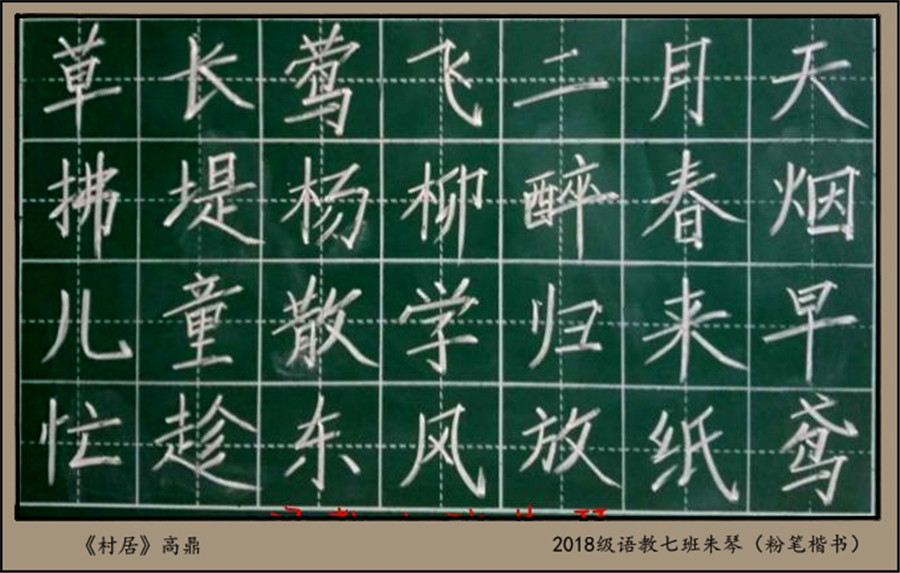 草长莺飞二月天
拂堤杨柳醉春烟
儿童散学归来早
忙趁东风放纸鸢
《村居》高鼎
2018级语教七班朱琴（粉笔楷书）